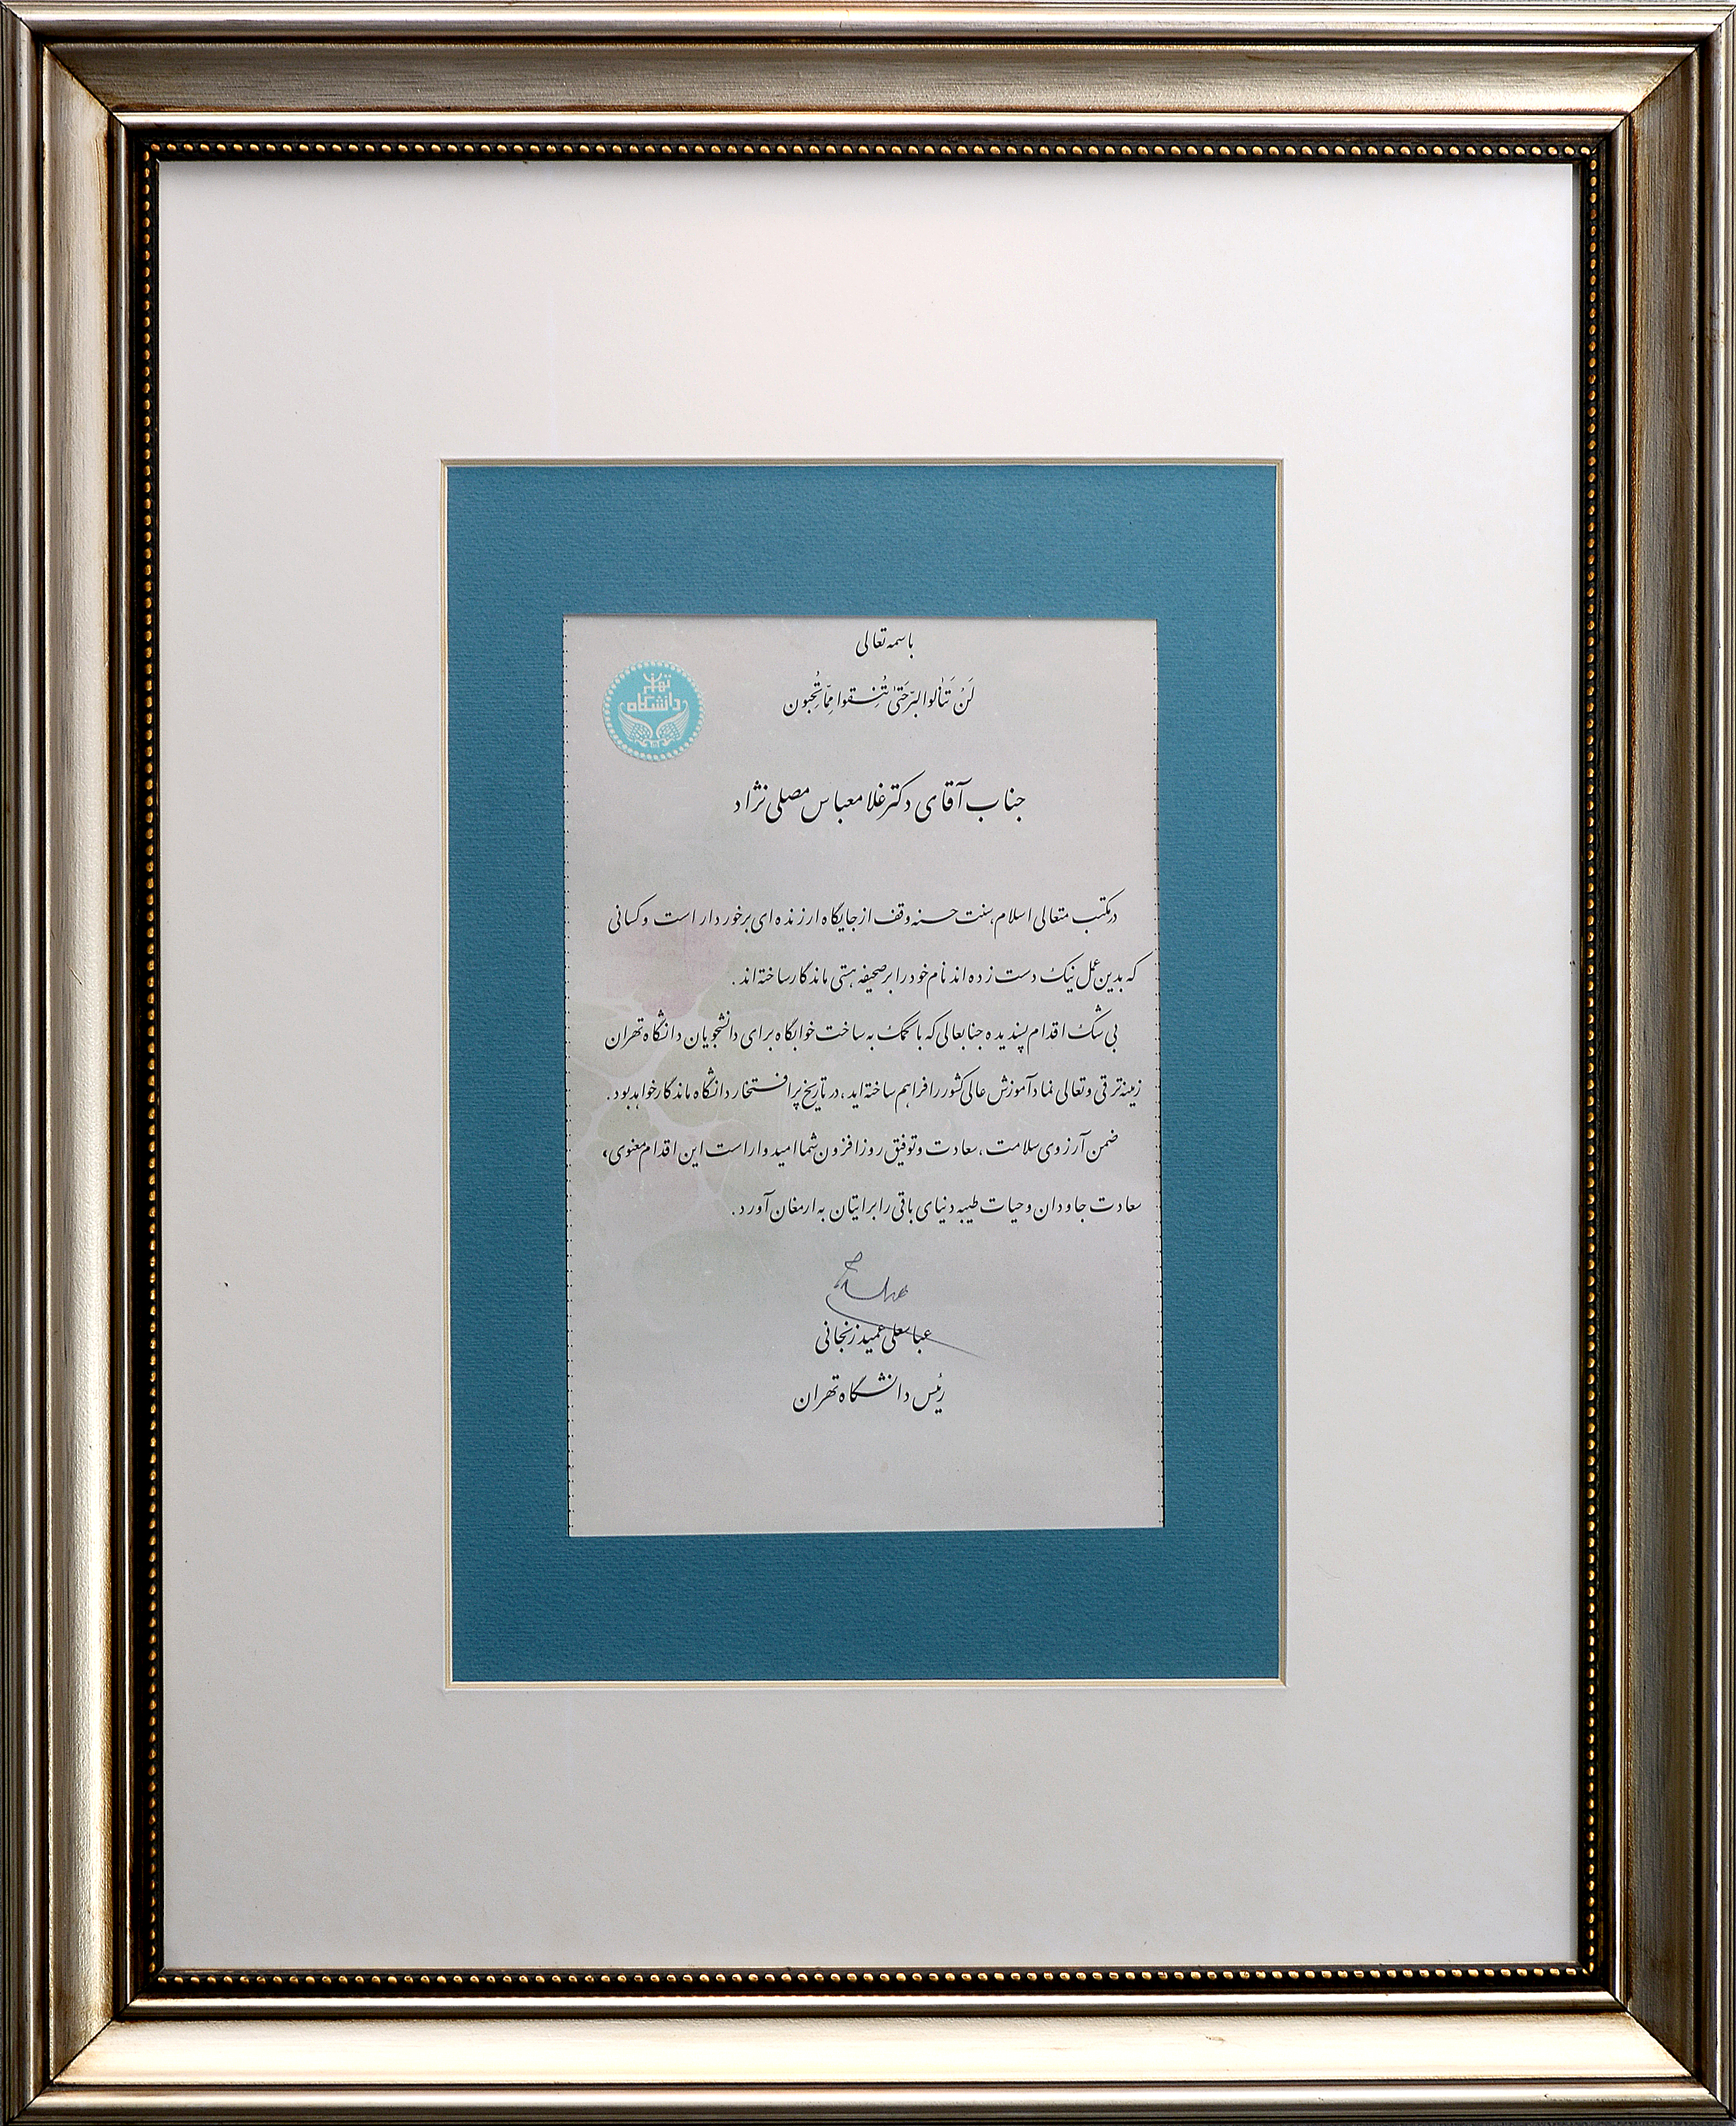 باسمه تعالی
لَنْ تَنالُوا البِرّحَتیٰ تُنفِقوا مِمّا تُحِبون
دانشگاه تهران
جناب آقای دکتر غلامعباس مصلی نژاد
در مکتب متعالی اسلام، سنت حسنه وقف از جایگاه ارزنده ای برخوردار است و کسانی
که بدین عمل نیک دست زده اند نام خود را بر صحیفه هستی ماندگار ساخته اند .
بی شک اقدام پسندیده جنابعالی که با کمک به ساخت خوابگاه برای دانشجویان دانشگاه تهران
زمینه ترقی و تعالی نماد آموزش عالی کشور را فراهم ساخته اید ، در تاریخ پر افتخار دانشگاه ماندگار خواهد بود .
ضمن آرزوی سلامت ، سعادت و توفیق روزافزون شما امیدوار است این اقدام معنوی،
سعادت جاودان و حیات طیبه دنیای باقی را برایتان به ارمغان آورد .
عباسعلی عمید زنجانی
رئیس دانشگاه تهران